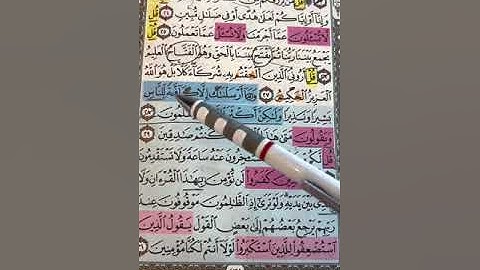 وَإِنَّا أَوْ إِيَّاكُمْ لَعَلَىٰ هُدًى أَوْ فِي ضَلَٰلٍ مُّبِينٍ ٢٤ قُل
لَّا تُسْـَٔلُونَ عَمَّا أَجْرَمْنَا وَلَا نُسْـَٔلُ عَمَّا تَعْمَلُونَ ٢٥ قُلْ
يَجْمَعُ بَيْنَنَا رَبُّنَا ثُمَّ يَفْتَحُ بَيْنَنَا بِالْحَقِّ وَهُوَ الْفَتَّاحُ الْعَلِيمُ
٢٦ قُلْ أَرُونِيَ الَّذِينَ أَلْحَقْتُم بِهِ شُرَكَاءَ كَلَّا بَلْ هُوَ اللَّهُ
الْعَزِيزُ الْحَكِيمُ ٢٧ وَمَا أَرْسَلْنَٰكَ إِلَّا كَافَّةً لِّلنَّاسِ
بَشِيرًا وَنَذِيرًا وَلَٰكِنَّ ٢٨
وَيَقُولُونَ مَتَىٰ كُنتُمْ صَٰدِقِينَ ٢٩
قُل لَّكُم عَنْهُ سَاعَةً وَلَا تَسْتَقْدِمُونَ
كَفَرُوا لَن نُّؤْمِنَ بِهَٰذَا الْقُرْءَانِ وَلَا
بَيْنَ يَدَيْهِ وَلَوْ تَرَىٰ إِذِ الظَّٰلِمُونَ مَوْقُوفُونَ عِندَ
رَبِّهِمْ يَرْجِعُ بَعْضُهُمْ إِلَىٰ بَعْضٍ الْقَوْلَ يَقُولُ الَّذِينَ
اسْتُضْعِفُوا لِلَّذِينَ اسْتَكْبَرُوا لَوْلَا أَنتُمْ لَكُنَّا مُؤْمِنِينَ